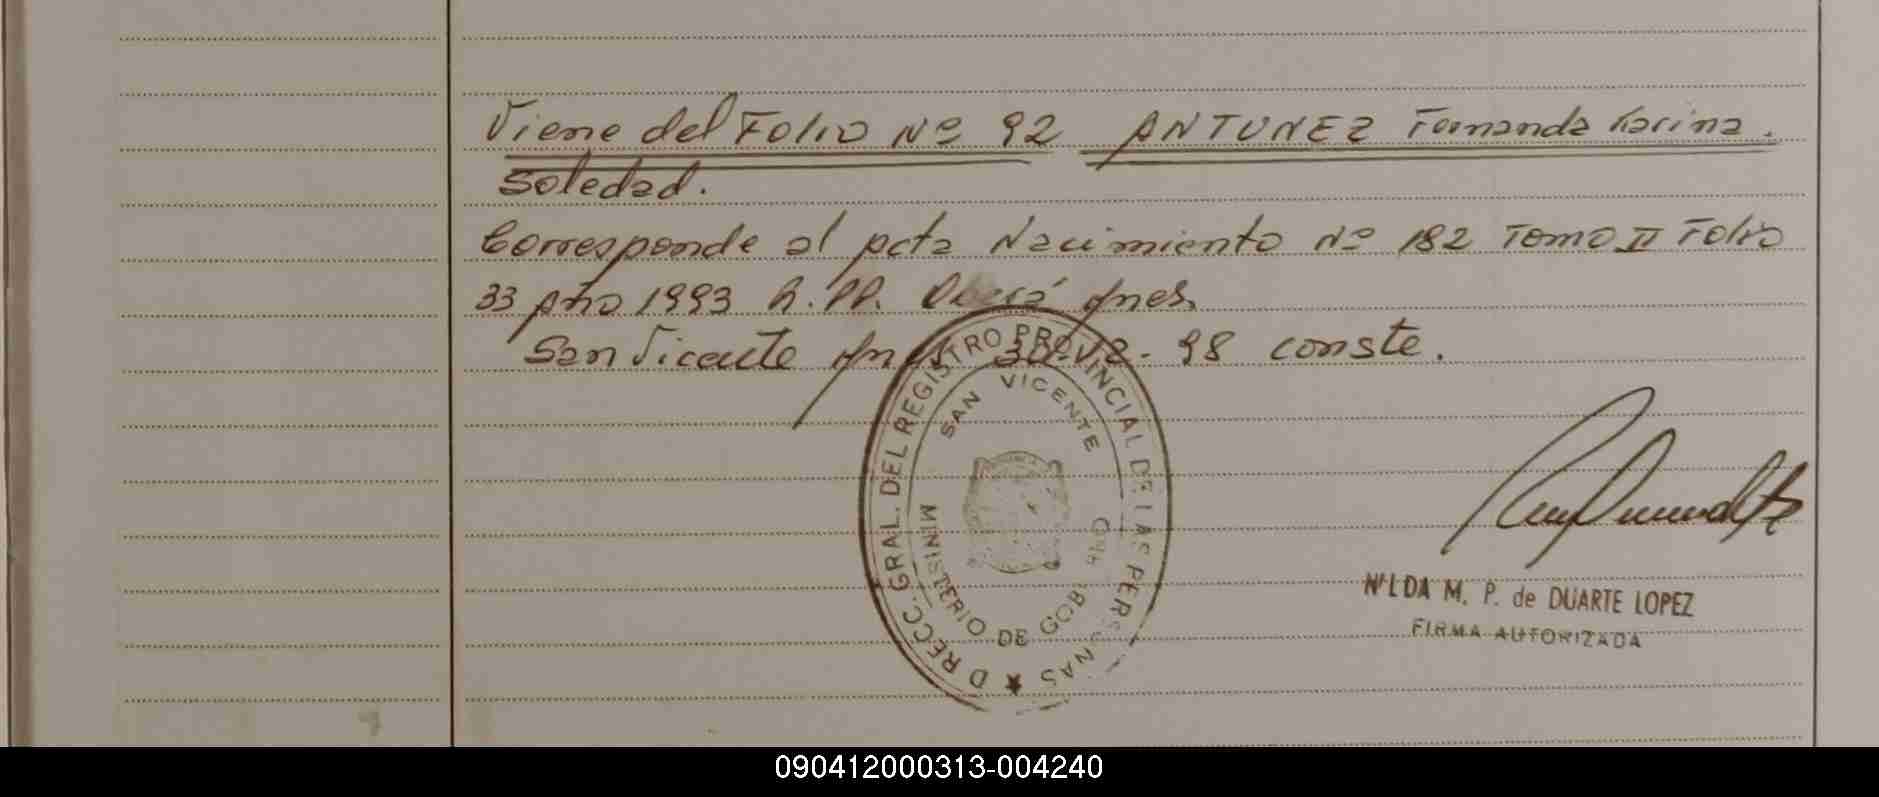 Viene del Folio Nº 92 ANTUNEZ Fernanda Karina.
Soledad.
Corresponde al Acta Nacimiento Nº 182 Tomo II Folio
33 Año 1993 R. PP. Mnes.
San Vicente Mnes 30-V2-98 conste.
DIRECC. GRAL. DEL REGISTRO PROVINCIAL DE LAS PERSONAS
SAN VICENTE
MINISTERIO DE GOBIERNO
NILDA M. P. de DUARTE LOPEZ
FIRMA AUTORIZADA
090412000313-004240